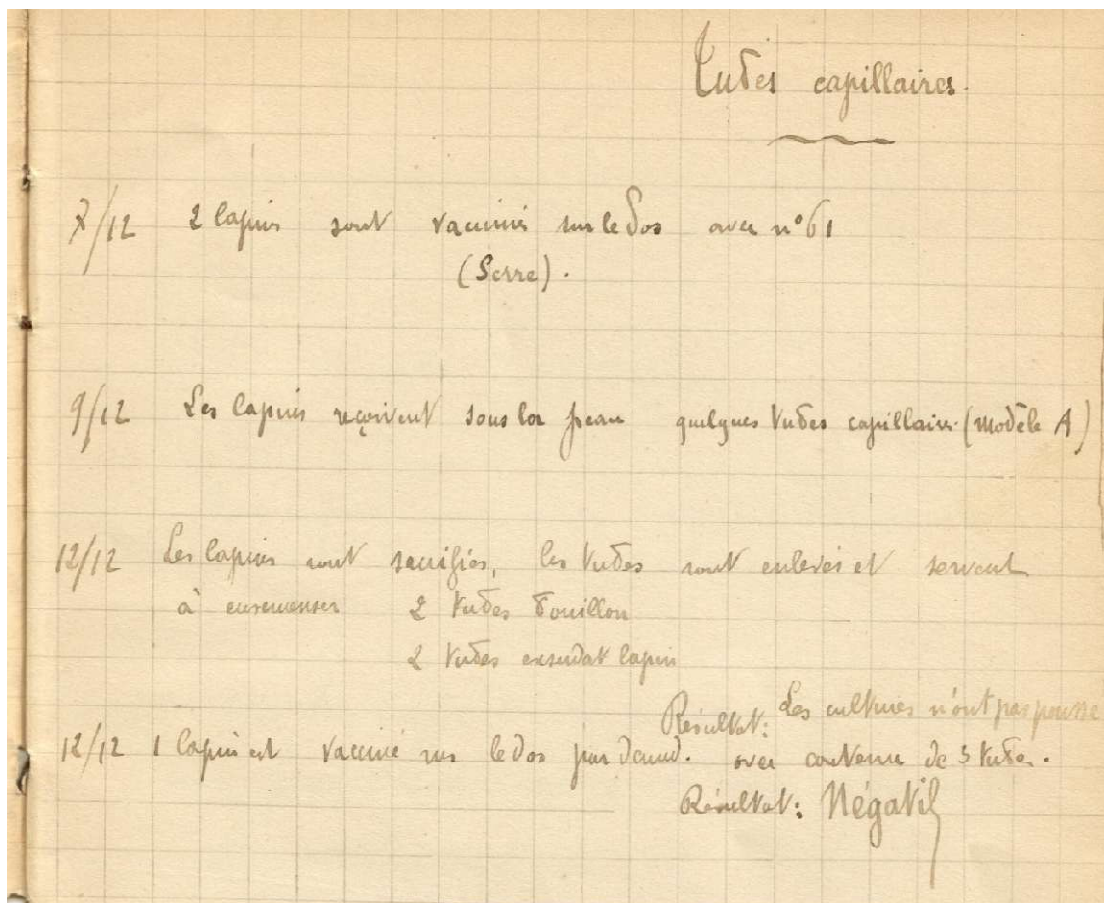 Tubes capillaires.
7/12 2 lapins sont vaccinés sur le dos avec n° 61
(Serre).
9/12 Les lapins reçoivent sous la peau quelques tubes capillaires (modèle A)
12/12 Les lapins sont sacrifiés, les tubes sont enlevés et servent
à ensemenser 2 tubes bouillon
2 tubes exsudat lapin
Résultat: Les cultures n'ont pas poussé
12/12 1 lapin est vacciné sur le dos avec contenu de 3 tubes.
Résultat: Négatif